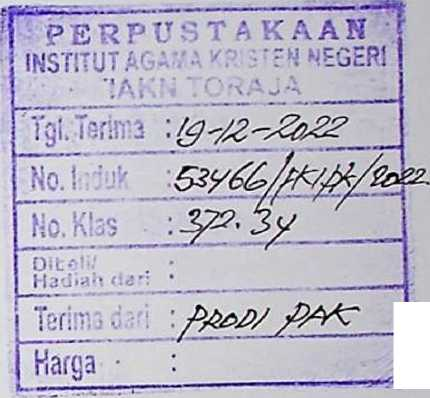 PERPUSTAKAAN
INSTITUT AGAMA KRISTEN NEGERI
IAKN TORAJA
Tgl. Terima : 19-12-2022
No. Induk : 53466/ /2022
No. Klas : 372.34
Dibeli/
Hadiah dari :
Terima dari : PRODI PAK
Harga :